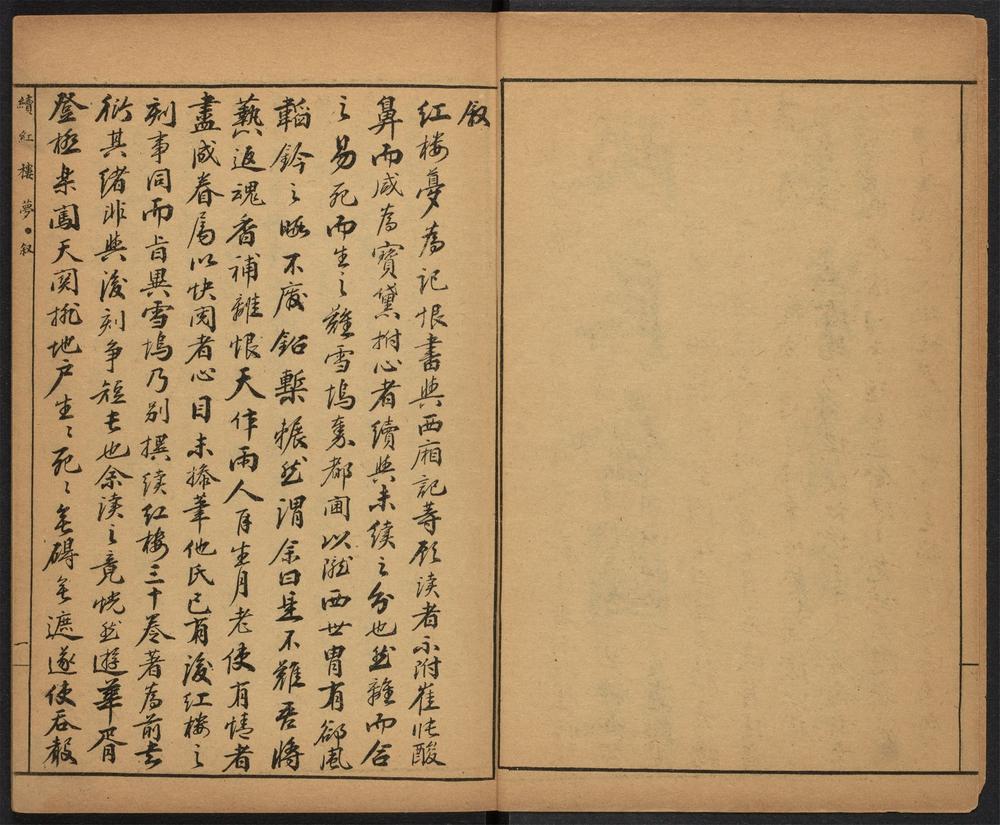 叙
红楼夢為記恨書與西廂記等顧读者不附崔張酸
鼻而咸為寶黛拊心者續與未續之分也然離而合
之易死而生之難雪塢秦都閫以隴西世胄有郤風
韜鈐之略不廢鉛槧輾然謂余曰是不難吾將
爇返魂香補離恨天作兩人再生月老使有情者
盡成眷属以快閱者心目未捧筆他氏已有後红樓之
刻事同而旨異雪塢乃别撰续红楼三十卷著為前書
衍其緒非與後刻争短長也余读之竟恍然遊華胥
登極樂闖天関排地户生々死々無礙無遮遂使吞聲
續紅樓夢·叙
一